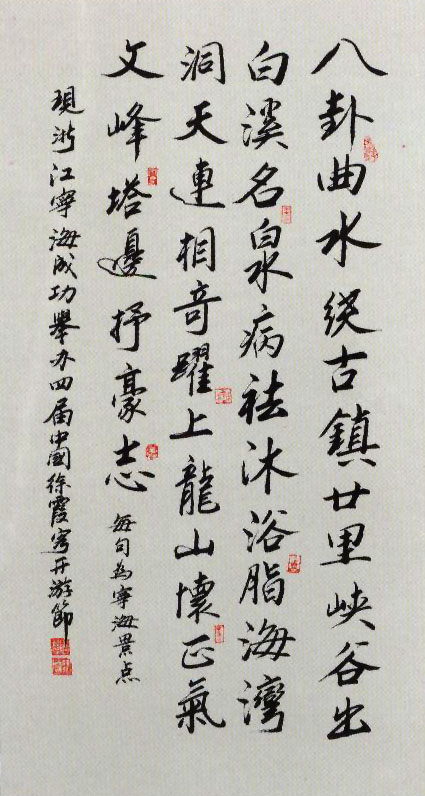 八卦曲水绕古鎮廿里峡谷出
白溪名泉病祛沐浴脂海灣
洞天連相奇躍上龍山懷正氣
文峰塔邊抒豪志
每句為寧海景点
現浙江寧海成功舉办四届中國徐霞客开游節